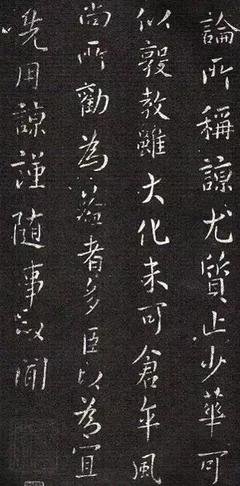 論所稱諒尤質止少華可
以敦教雖大化未可倉卒風
尚所勸為益者多臣以為宜
先用諒謹隨事以聞